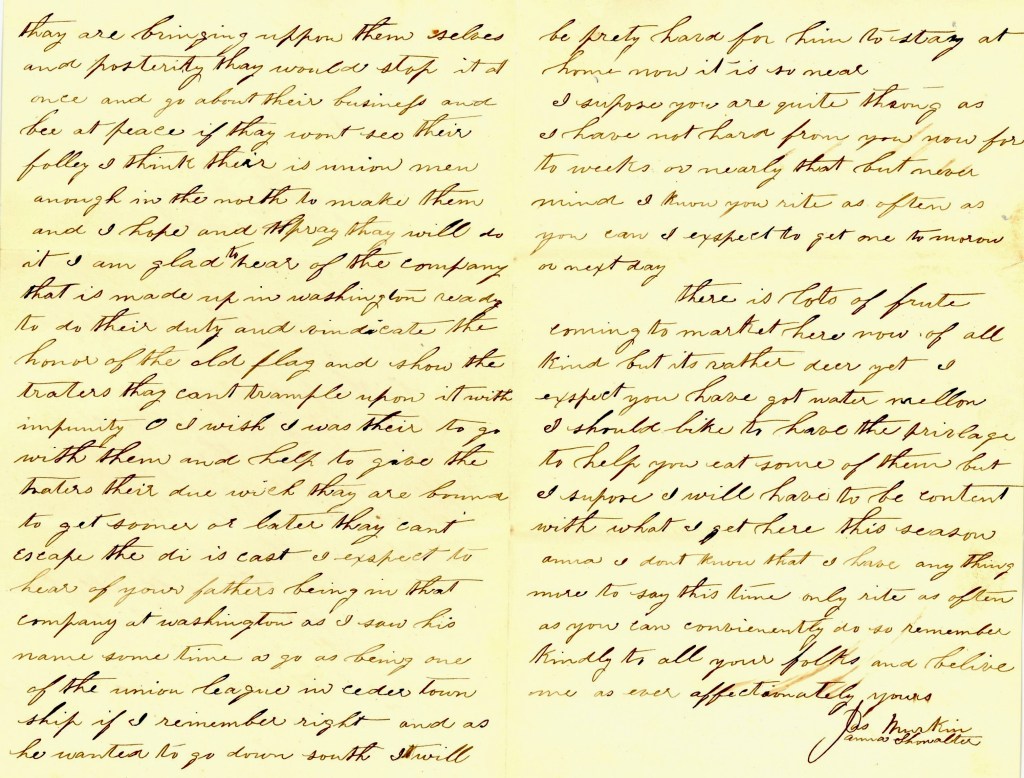 thay are bringing uppon them selves
and posterity thay would stop it at
once and go about their business and
bee at peace if thay wont see their
folley I think their is union men
anough in the north to make them
and I hope and pray thay will do
it I am glad to hear of the company
that is made up in washington ready
to do their duty and vindicate the
honor of the old flag and show the
traters thay cant trample upon it with
impunity O I wish I was their to go
with them and help to give the
traters their due wich thay are bound
to get sooner or later thay cant
escape the di is cast I exspect to
hear of your fathers being in that
company at washington as I saw his
name some time a go as being one
of the union league in ceder town
ship if I remember right and as
he wanted to go down south It will
be prety hard for him to stay at
home now it is so near
I supose you are quite throng as
I have not hard from you now for
to weeks or nearly that but never
mind I know you rite as often as
you can I expect to get one to morow
or next day
there is lots of frute
coming to market here now of all
kind but its rather deer yet I
exspect you have got water mellon
I should like to have the privlage
to help you eat some of them but
I supose I will have to be content
with what I get here this season
anna I dont know that I have any thing
more to say this time only rite as often
as you can convienently do so remember
kindly to all your folks and belive
me as ever affectionately yours
Jas Murkin
anna Showalter